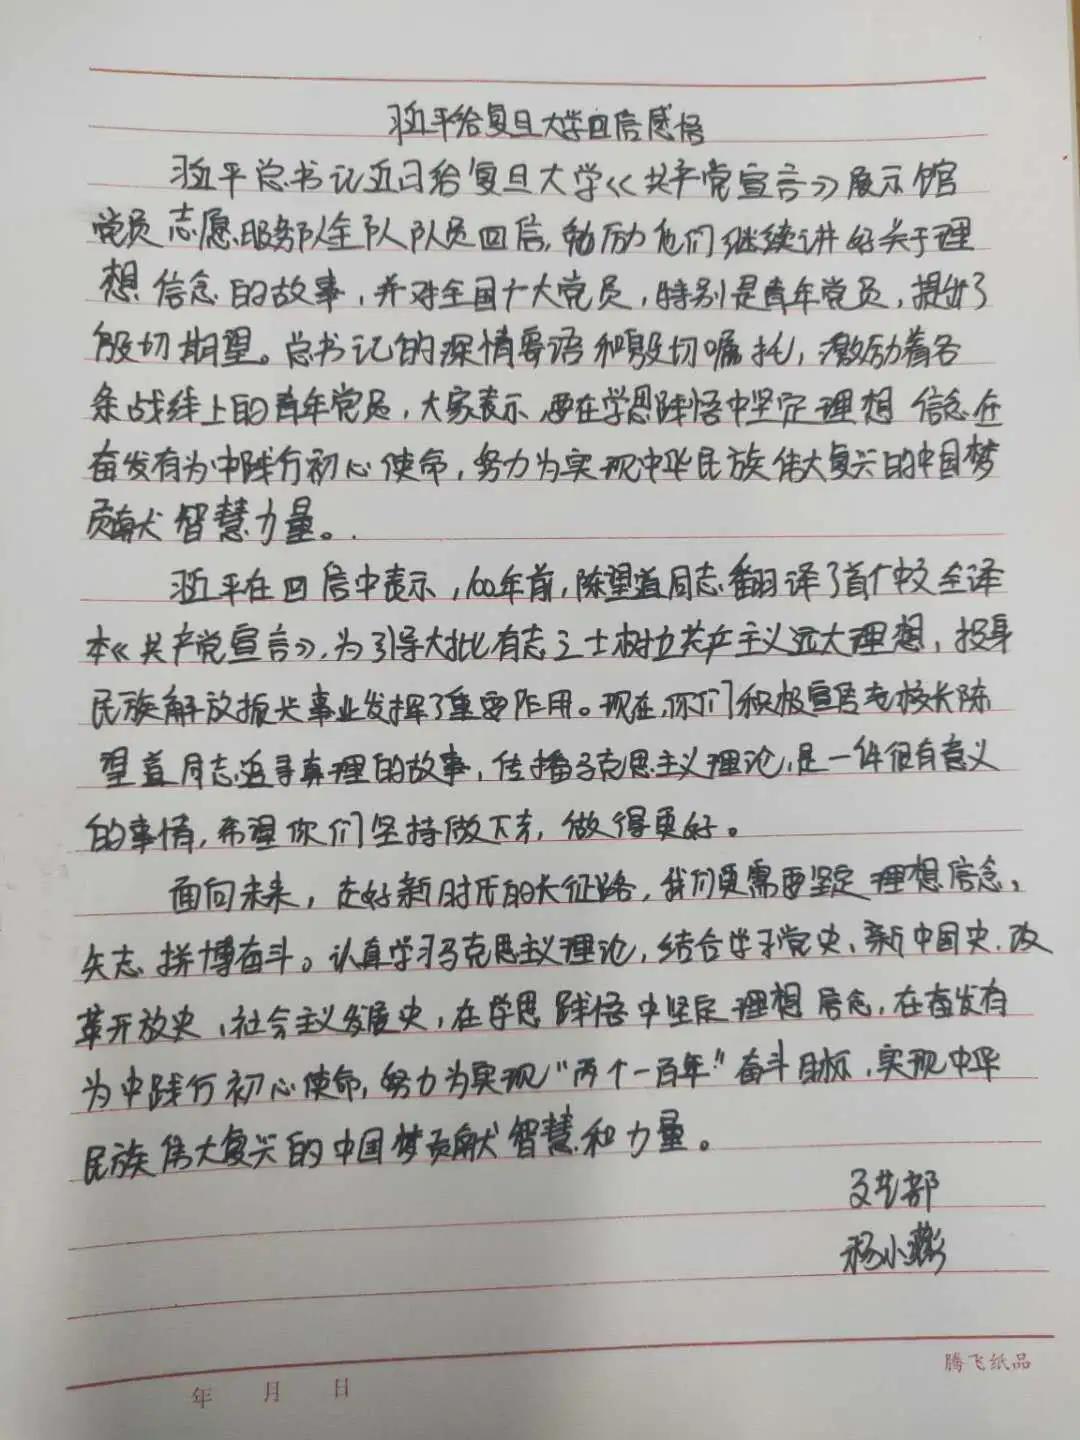 习近平给复旦大学回信感悟
习近平总书记近日给复旦大学《共产党宣言》展示馆
党员志愿服务队全队队员回信,勉励他们继续讲好关于理
想信念的故事,并对全国广大党员,特别是青年党员,提出了
殷切期望。总书记的深情寄语和殷切嘱托,激励着各
条战线上的青年党员,大家表示,要在学思践悟中坚定理想信念在
奋发有为中践行初心使命,努力为实现中华民族伟大复兴的中国梦
贡献智慧力量。
习近平在回信中表示,100年前,陈望道同志翻译了首个中文全译
本《共产党宣言》,为引导大批有志之士树立共产主义远大理想,投身
民族解放振兴事业发挥了重要作用。现在,你们积极宣传老校长陈
望道同志追寻真理的故事,传播马克思主义理论,是一件很有意义
的事情,希望你们坚持做下去,做得更好。
面向未来,走好新时代的长征路,我们更需要坚定理想信念,
矢志拼搏奋斗。认真学习马克思主义理论,结合学习党史、新中国史、改
革开放史、社会主义发展史,在学思践悟中坚定理想信念,在奋发有
为中践行初心使命,努力为实现"两个一百年"奋斗目标,实现中华
民族伟大复兴的中国梦贡献智慧和力量。
文艺部
杨小彬
腾飞纸品
年 月 日